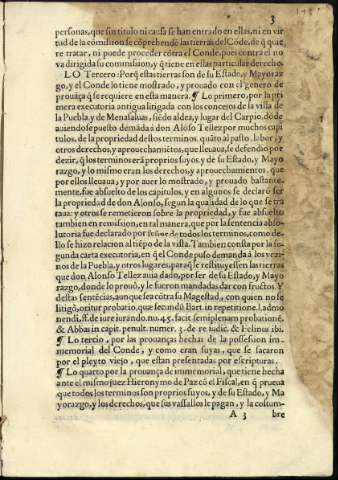 3
personas, que sin titulo ni causa se han entrado en ellas, ni en vir
tud de la comision se cõprehendẽ las tierras del Cõde, de q̃ quie
re tratar, ni puede proceder cõtra el Conde, pues contra el no
va dirigida su commission, y q̃ tiene en ellas particular derecho.
LO Tercero: Porq̃ estas tierras son de su Estado, y Mayoraz
go, y el Conde lo tiene mostrado, y prouado con el genero de
prouãça q̃ se requiere en esta manera. ¶ Lo primero, por la pri
mera executoria antigua litigada con los concejos de la villa de
la Puebla, y de Menasaluas, siẽdo aldea, y lugar del Carpio, dõde
auiendose puesto demãda a don Alõso Tellez por muchos capi
tulos, de la propriedad de los terminos, quãto al pasto, labor, y
otros derechos, y aprouechamiẽtos, que lleuaua, se defendio por
dezir, q̃ los terminos erã proprios suyos, y de su Estado, y Mayo
razgo, y lo mismo eran los derechos, y aprouechamientos, que
por ellos lleuaua, y por auer lo mostrado, y prouado bastante-
mente, fue absuelto de los capitulos, y en algunos se declarò ser
la propriedad de don Alonso, segun la qualidad de lo que se tra
taua: y otros se remetieron sobre la propriedad, y fue absuelto
tambien en remission, en tal manera, que por la sentencia absolu
toria fue declarado por señor de todos los terminos, como de-
llo se hizo relacion al tiẽpo de la vista. Tambien consta por la se
gunda carta executoria, en q̃ el Conde puso demanda à los vezi
nos de la Puebla, y otros lugares, para q̃ le restituyessen las tierras
que don Alonso Tellez auia dado, por ser de su Estado, y Mayo
razgo, donde lo prouò, y le fueron mandadas dar con fructos. Y
destas sentẽcias, aunque sea cõtra su Magestad, con quien no se
litigò, oritur probatio, que secundũ Bart. in repetitione. l. admo
nendi. ff. de iure iurando. no. 45. facit semiplenam probationẽ,
& Abbas in capit. penult. numer. 3. de re iudic. & Felinus ibi.
¶ Lo tercio, por las prouanças hechas de la possesion im-
memorial del Conde, y como eran suyas, que se sacaron
por el pleyto viejo, que estan presentadas por escripturas.
¶ Lo quarto por la prouança de immemorial, que tiene hecha
ante el mismo juez Hieronymo de Paz cõ el Fiscal, en q̃ prueua
que todos los terminos son proprios suyos, y de su Estado, y Ma
yorazgo, y los derechos, que sus vassallos le pagan, y la costum-
A 3 bre